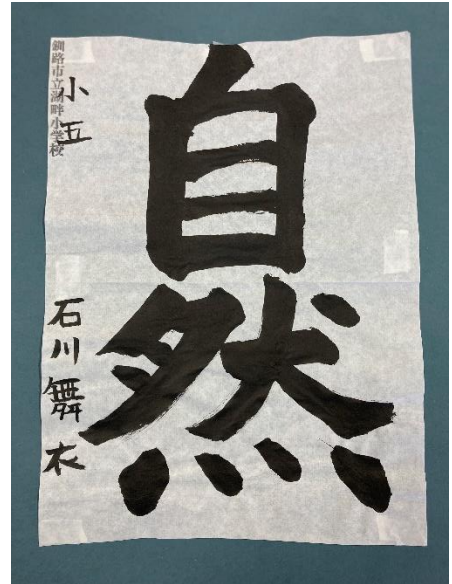 自然
釧路市立湖畔小学校
小五
石川舞衣